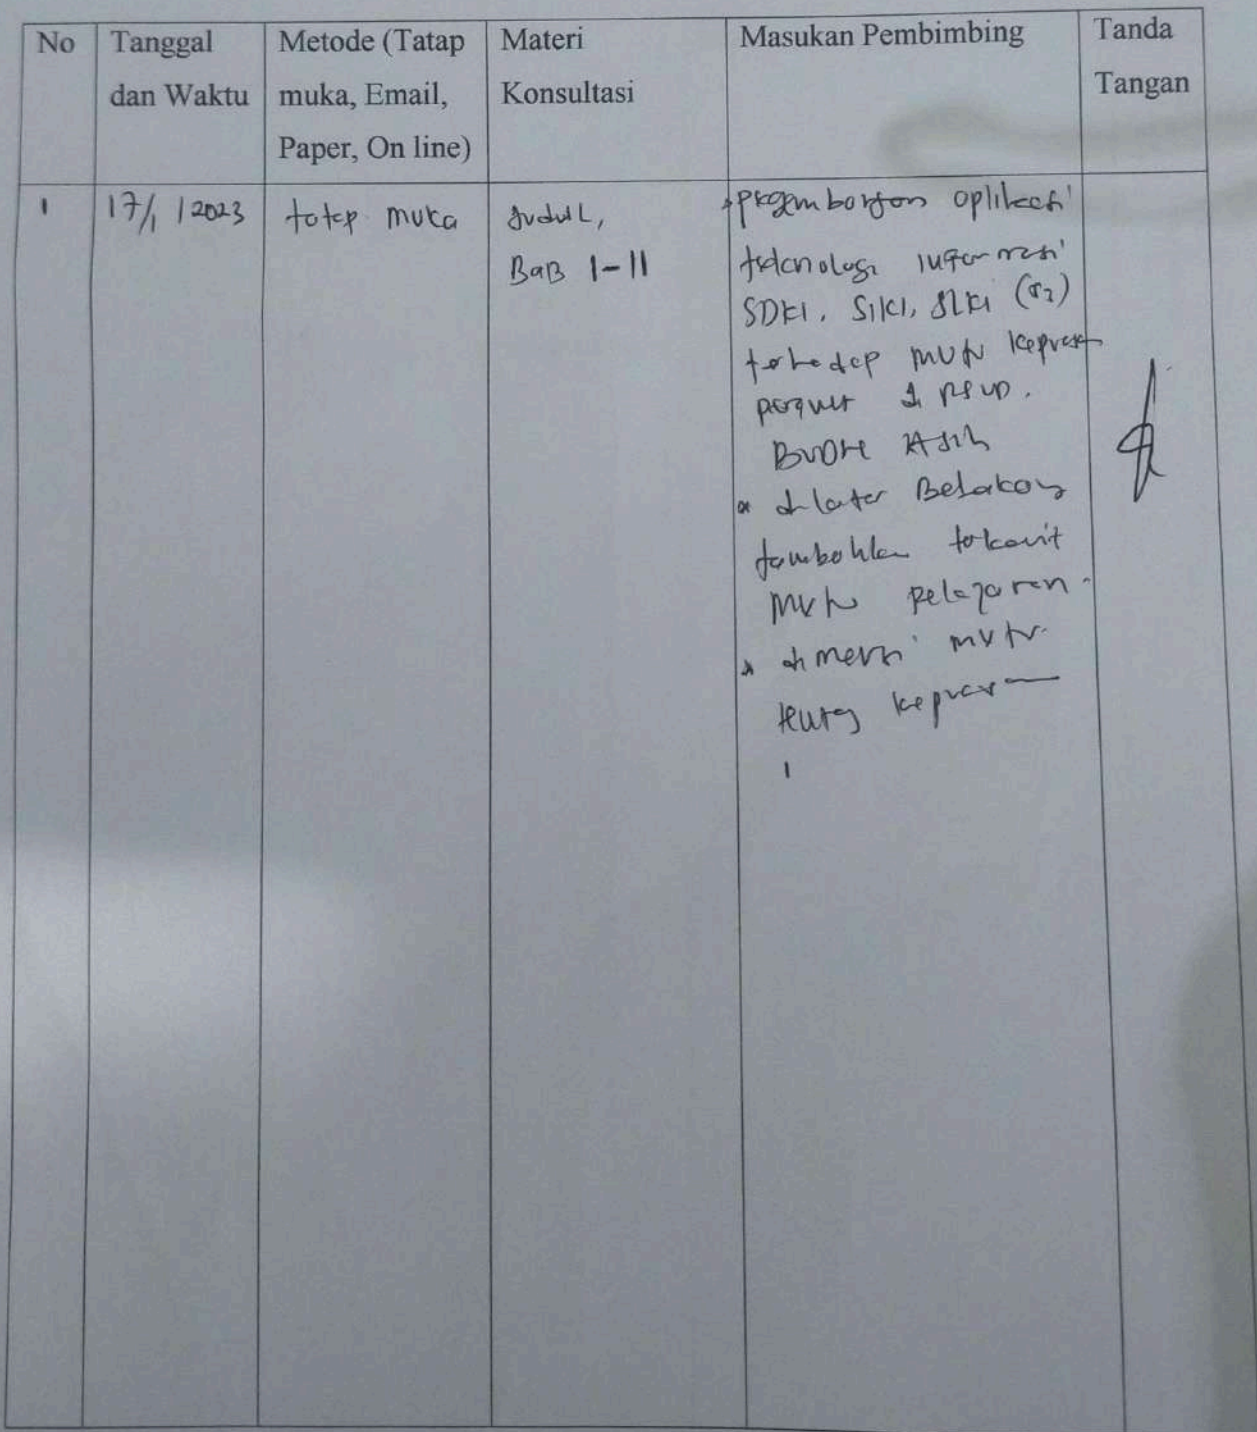 No
Tanggal
dan Waktu
Metode (Tatap
muka, Email,
Paper, On line)
Materi
Konsultasi
Masukan Pembimbing
Tanda
Tangan
1
17/1 / 2023
tatap muka
Judul,
BaB I-II
pengembangan aplikasi
teknologi informasi
SDKI, SIKI, SLKI
terhadap mutu
di RSUD.
BUDHI ASIH
di latar Belakang
tambahkan terkait
mutu pelayanan
dimensi mutu